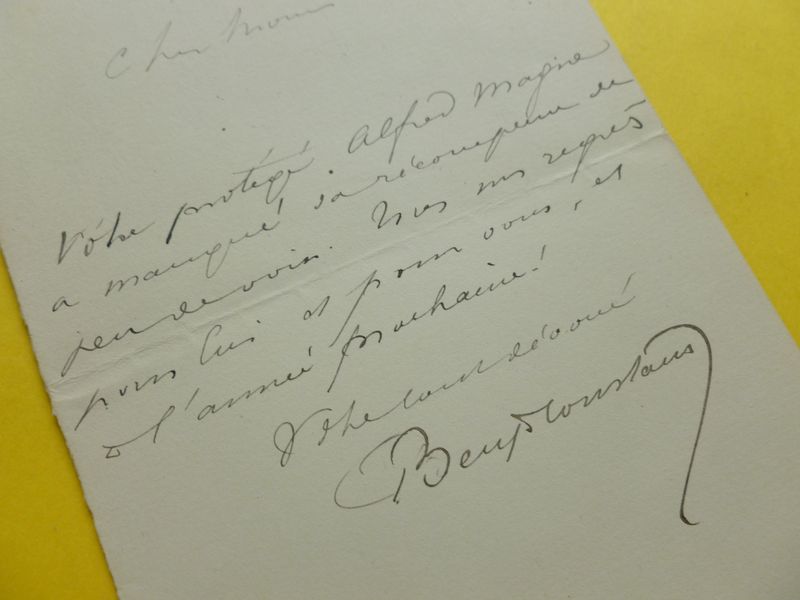 Cher
Vôtre protégé. Alfred Magne
a manqué sa récompense de
peu de voix. Tous mes regrès
pour lui et pour vous, et
à l'année prochaine!
Vôtre tout dévoué
Benj Constant